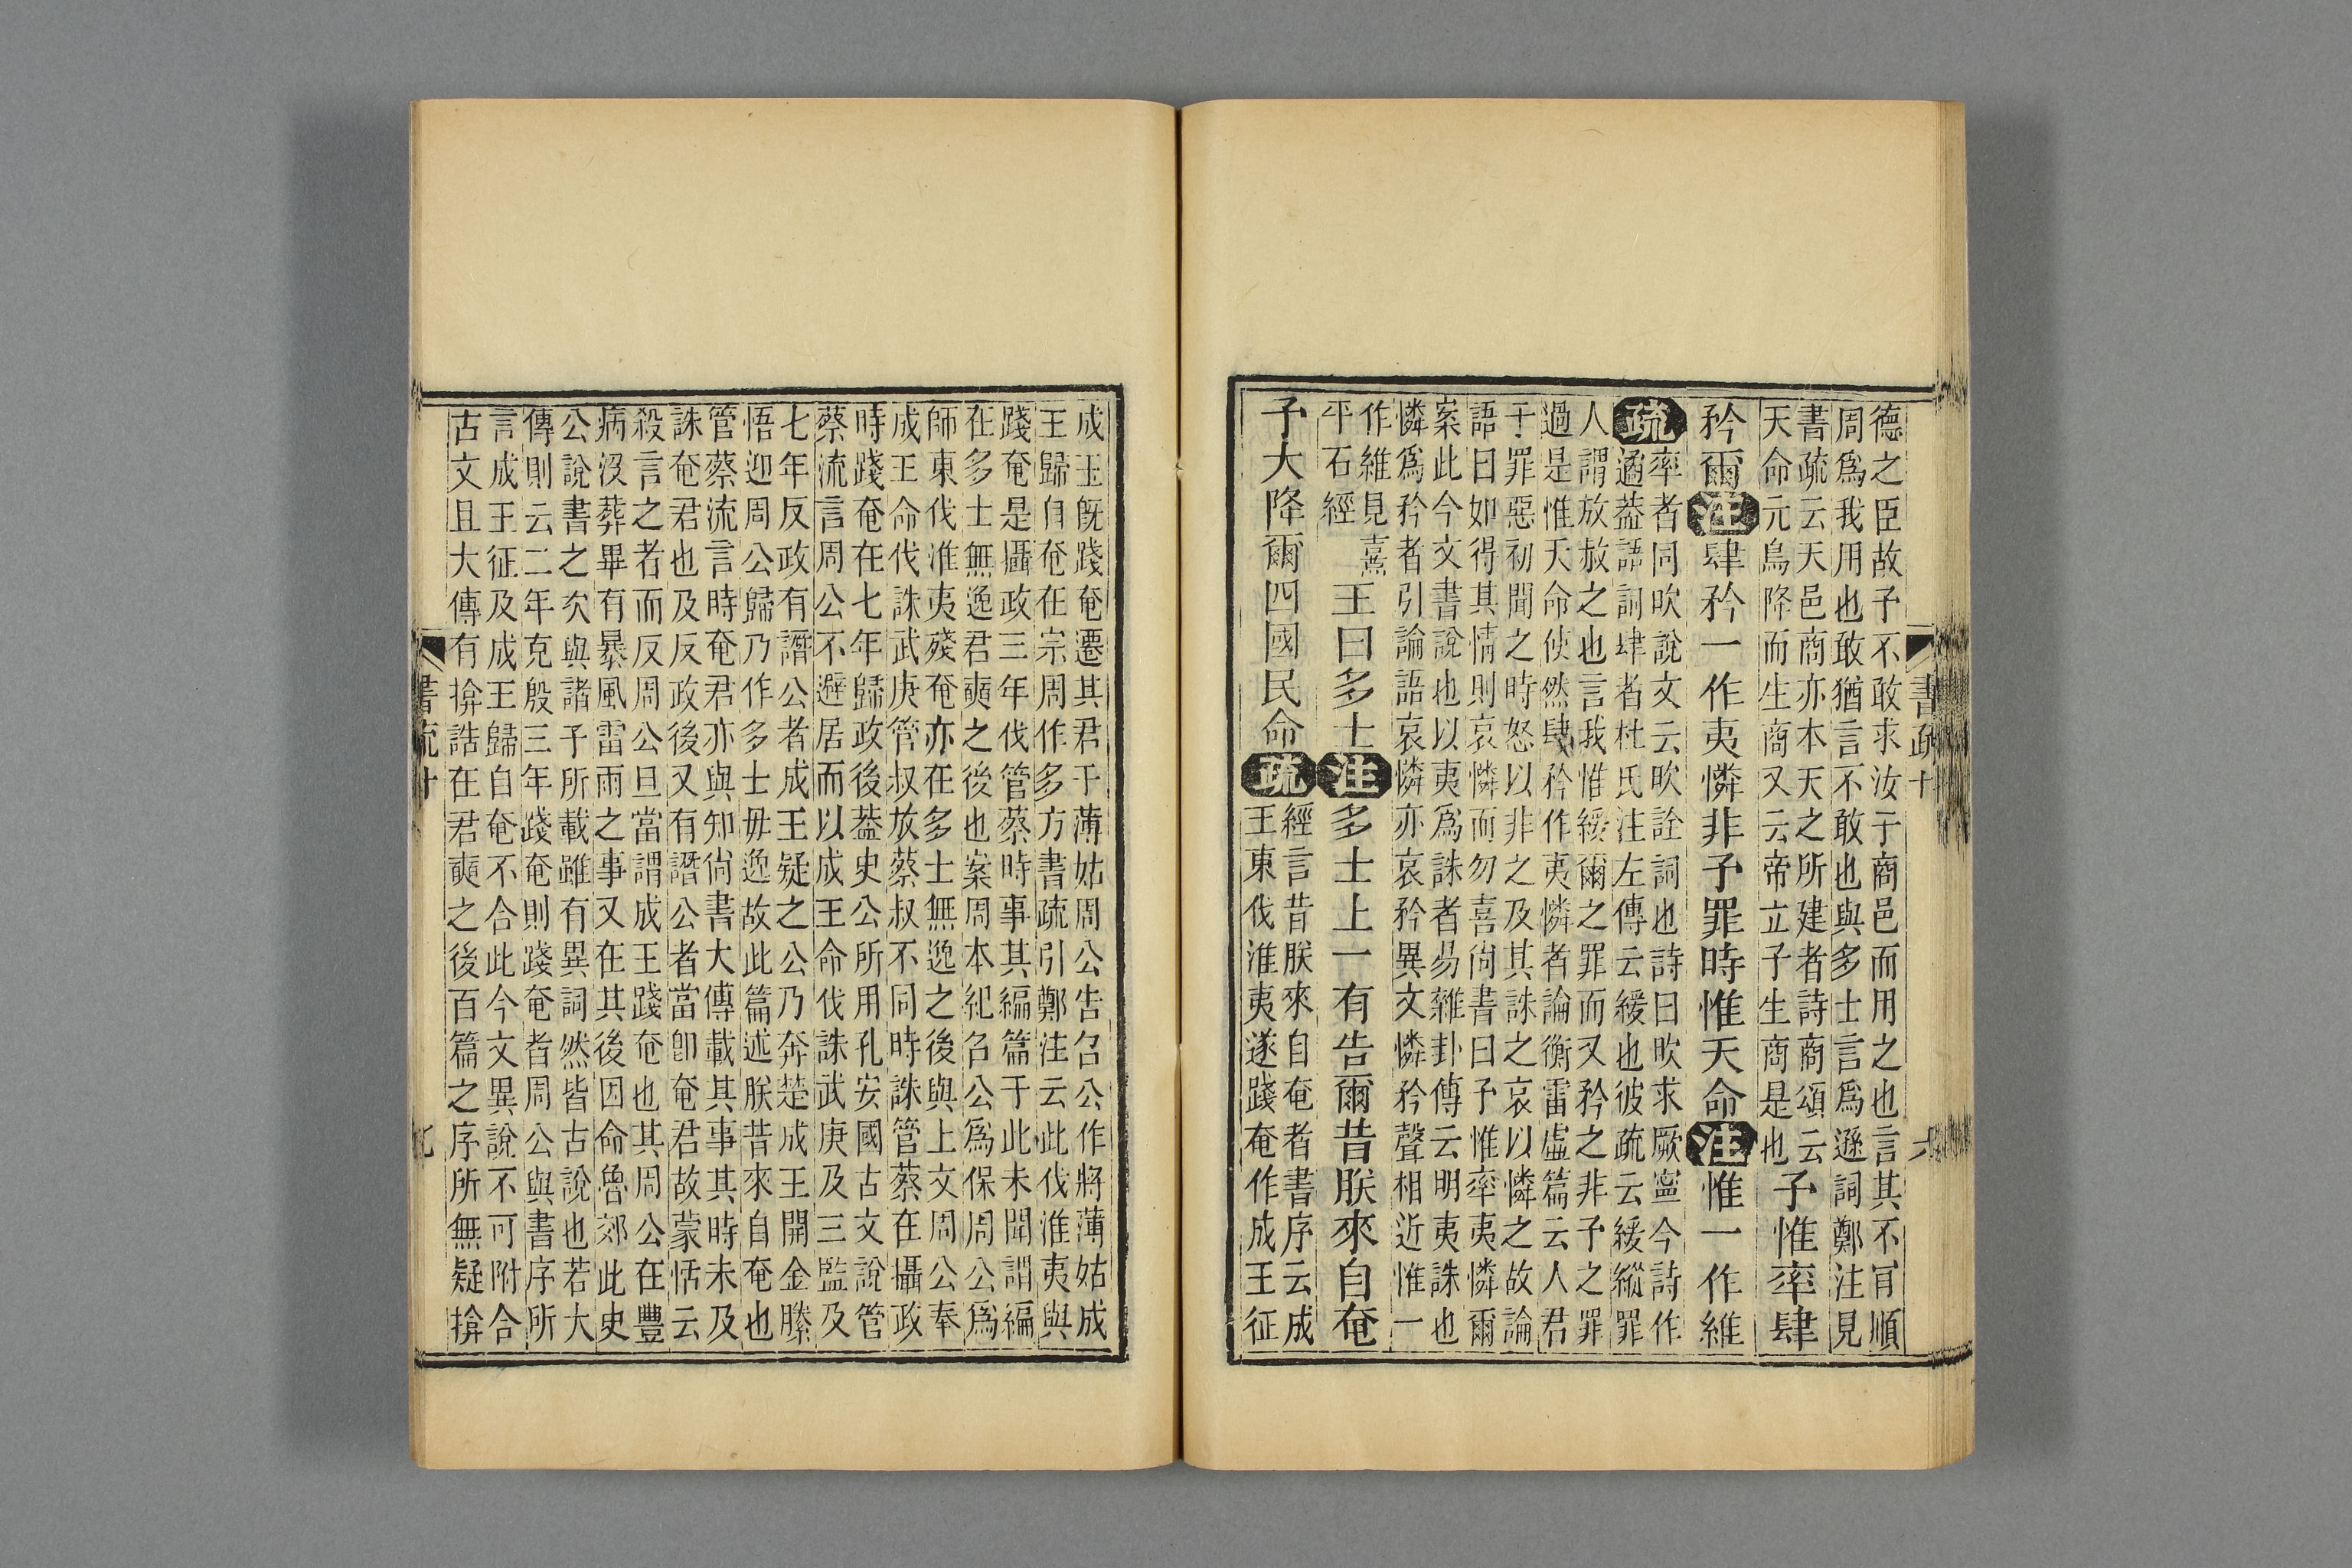 德之臣故予不敢求汝于商邑而用之也言其不肎順
周爲我用也敢猶言不敢也與多士言爲遜詞鄭注見
書疏云天邑商亦本天之所建者詩商頌云
天命元鳥降而生商又云帝立子生商是也
予惟率肆
矜爾注肆矜一作夷憐非予罪時惟天命注惟一作維
疏
率者同吹說文云吹詮詞也詩曰吹求厥寧今詩作
遹葢語詞肆者杜氏注左傳云緩也彼疏云緩縱罪
人謂放赦之也言我惟緩爾之罪而又矜之非予之罪
過是惟天命使然肆矜作夷憐者論衡雷虛篇云人君
于罪惡初聞之時怒以非之及其誅之哀以憐之故論
語曰如得其情則哀憐而勿喜尙書曰予惟率夷憐爾
案此今文書說也以夷爲誅者易雜卦傳云明夷誅也
憐爲矜者引論語哀憐亦哀矜異文憐矜聲相近惟一
作維見熹
平石經
王曰多士注多士上一有告爾昔朕來自奄
予大降爾四國民命疏
經言昔朕來自奄者書序云成
王東伐淮夷遂踐奄作成王征
書疏十
六
成王旣踐奄遷其君于薄姑周公告召公作將薄姑成
王歸自奄在宗周作多方書疏引鄭注云此伐淮夷與
踐奄是攝政三年伐管蔡時事其編篇于此未聞謂編
在多士無逸君奭之後也案周本紀召公爲保周公爲
師東伐淮夷殘奄亦在多士無逸之後與上文周公奉
成王命伐誅武庚管叔放蔡叔不同時誅管蔡在攝政
時踐奄在七年歸政後葢史公所用孔安國古文說管
蔡流言周公不避居而以成王命伐誅武庚及三監及
七年反政有譖公者成王疑之公乃奔楚成王開金縢
悟迎周公歸乃作多士毋逸故此篇述朕昔來自奄也
管蔡流言時奄君亦與知尙書大傳載其事其時未及
誅奄君也及反政後又有譖公者當卽奄君故蒙恬云
殺言之者而反周公旦當謂成王踐奄也其周公在豐
病沒葬畢有暴風雷雨之事又在其後因命魯郊此史
公說書之次與諸子所載雖有異詞然皆古說也若大
傳則云二年克殷三年踐奄則踐奄者周公與書序所
言成王征及成王歸自奄不合此今文異說不可附合
古文且大傳有揜誥在君奭之後百篇之序所無疑揜
書疏十
七